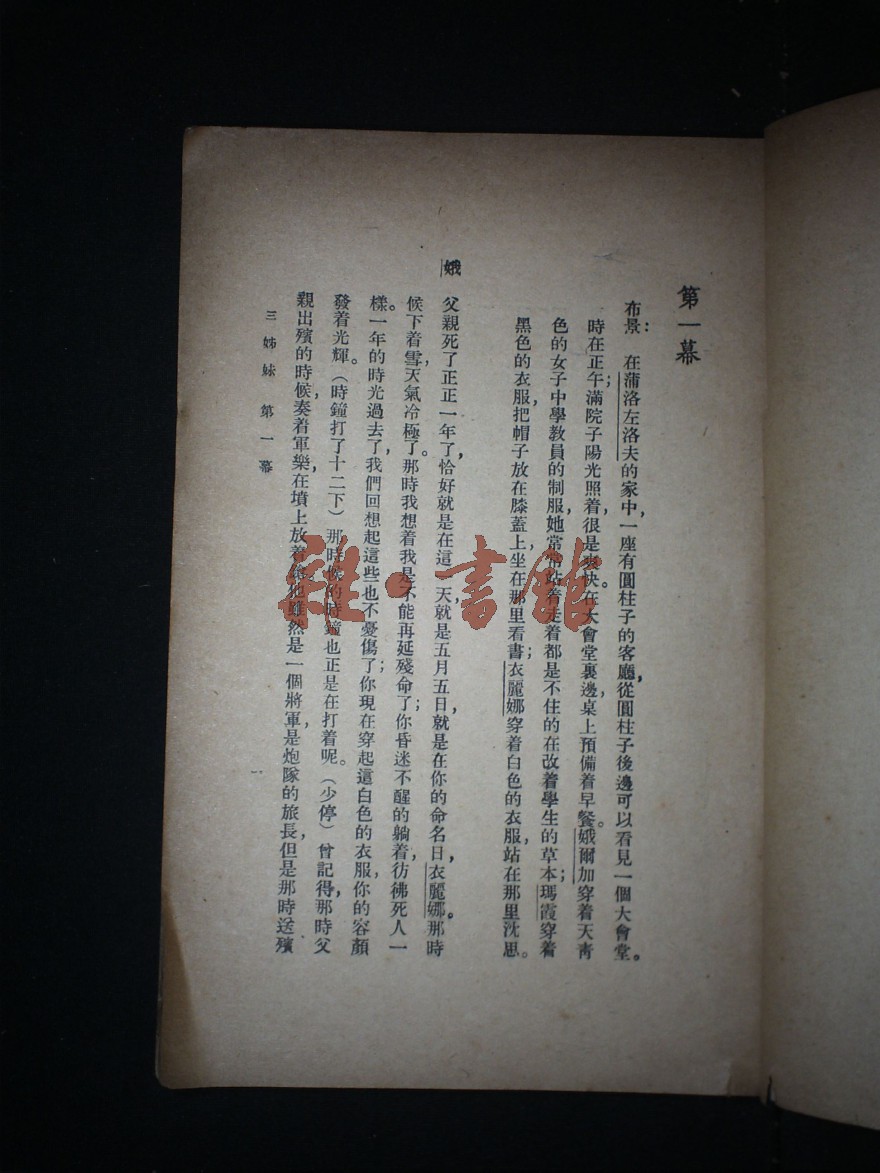 第一幕
布景：　在蒲洛左洛夫的家中，一座有圓柱子的客廳，從圓柱子後邊可以看見一個大會堂。
時在正午；滿院子陽光照着很是爽快。在大會堂裏邊，桌上預備着早餐。娥爾加穿着天青
色的女子中學教員的制服，她常常站着走着都是不住的在改着學生的草本；瑪霞穿着
黑色的衣服，把帽子放在膝蓋上，坐在那里看書；衣麗娜穿着白色的衣服，站在那里沈思。
娥　父親死了正正一年了，恰好就是在這一天，就是五月五日，就是在你的命名日，衣麗娜。那時
候下着雪，天氣冷極了。那時我想着我是不能再延殘命了；你昏迷不醒的躺着，彷彿死人一
樣。一年的時光過去了，我們回想起這些也不憂傷了；你現在穿起這白色的衣服，你的容顏
發着光輝。（時鐘打了十二下）那時候的時鐘也正是在打着呢。（少停）曾記得，那時父
親出殯的時候，奏着軍樂，在墳上放着他雖然是一個將軍，是炮隊的旅長，但是那時送殯
三姊妹　第一幕
雜·書館